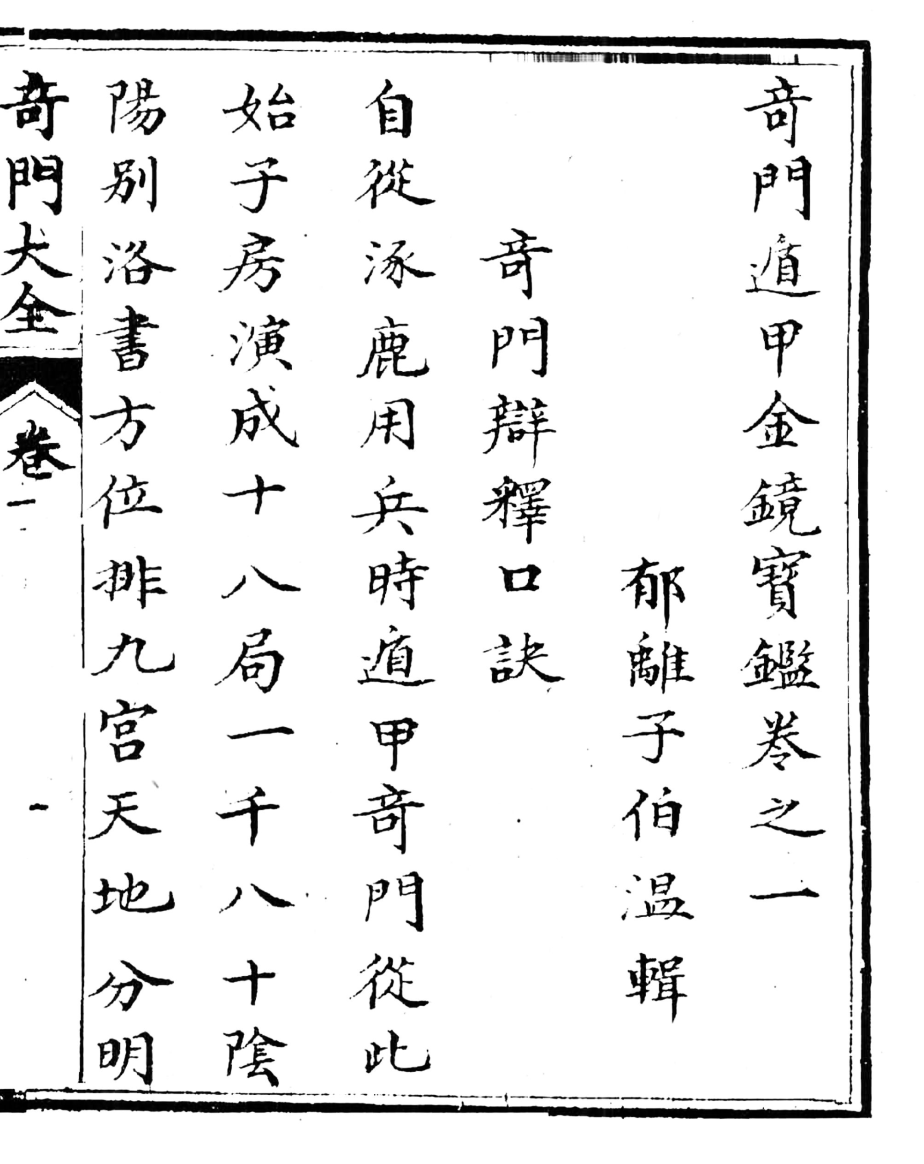 竒門遁甲金鏡寳鑑卷之一
郁離子伯温輯
竒門辯釋口訣
自從涿鹿用兵時遁甲竒門從此
始子房演成十八局一千八十陰
陽別洛書方位排九宮天地分明
竒門大全 卷一 一